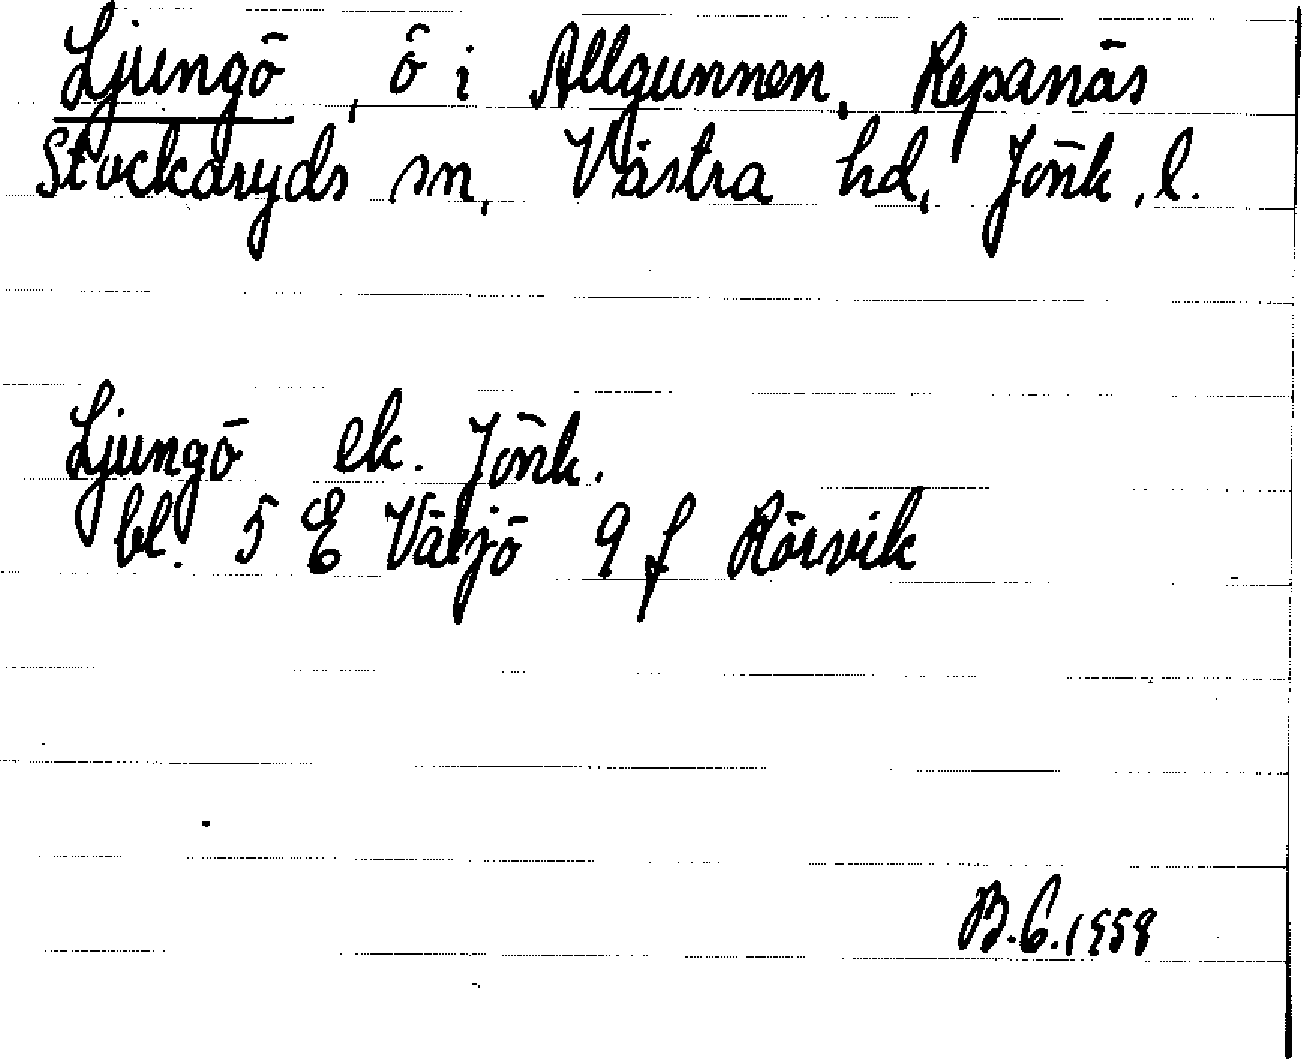 Ljungö, ö i Allgunnen, Repanäs
Stockaryds sn, Västra hd, Jönk. l.
Ljungö ek. Jönk.
bl. 5 E Växjö 9 f Rörvik
B.G. 1958